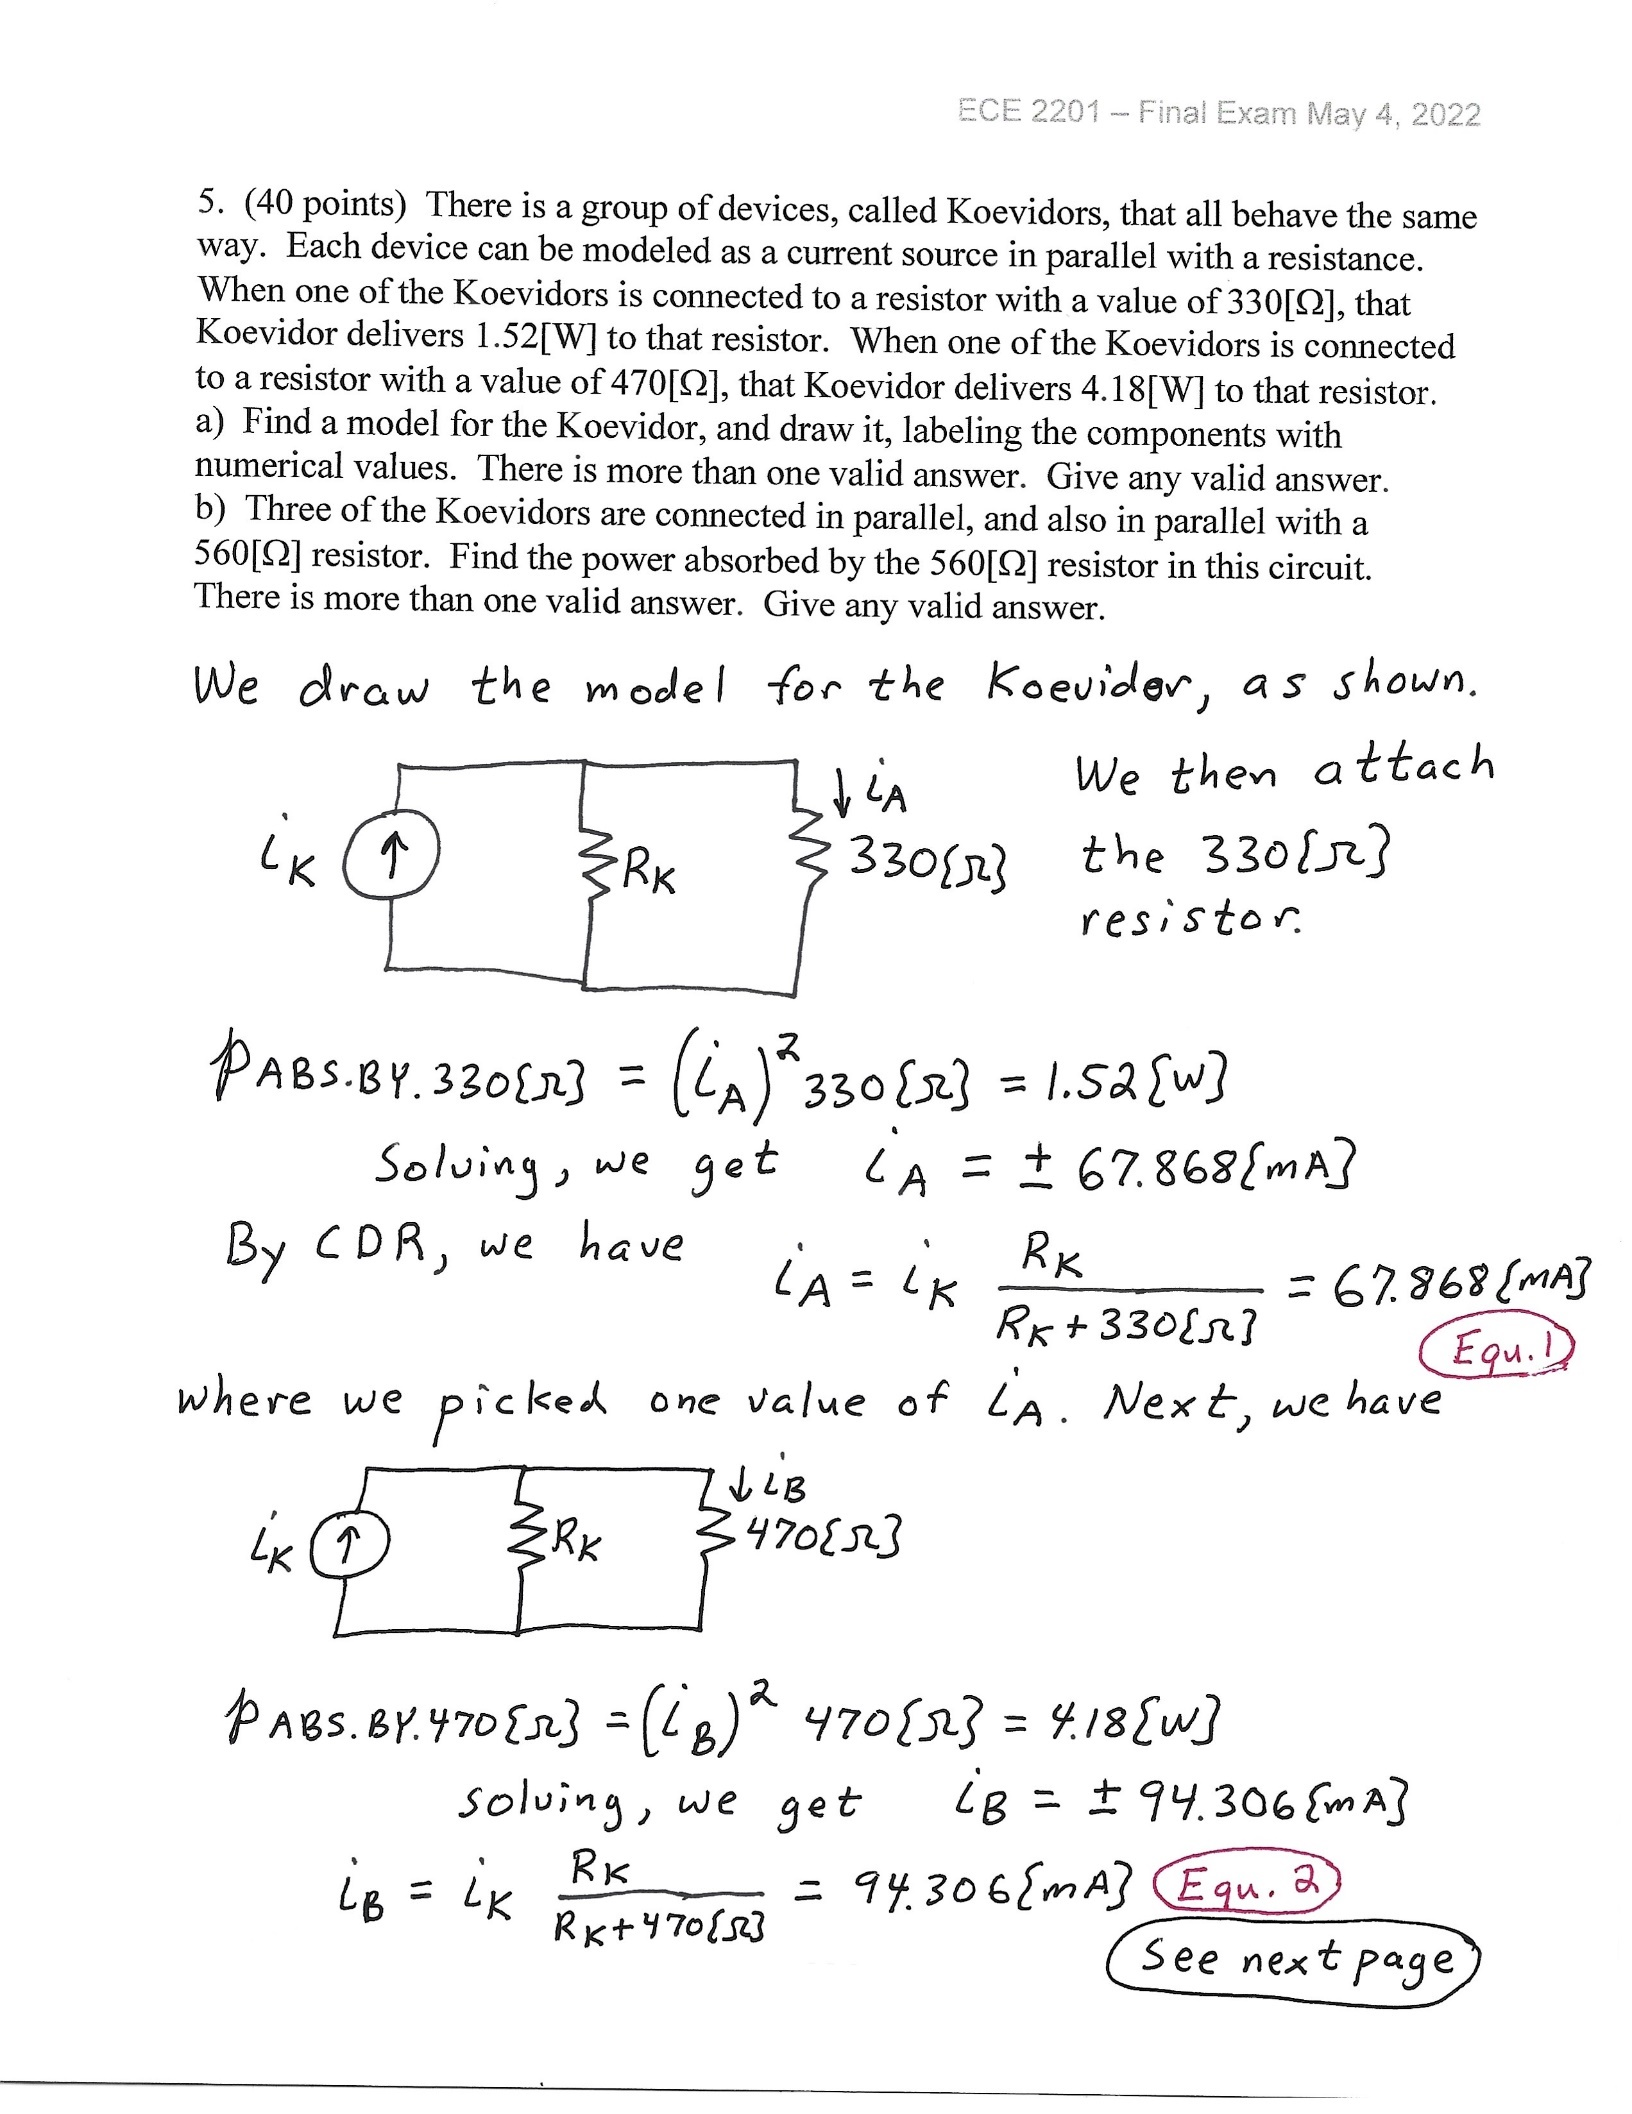 ECE 2201 – Final Exam May 4, 2022
5. (40 points)  There is a group of devices, called Koevidors, that all behave the same
way.  Each device can be modeled as a current source in parallel with a resistance.
When one of the Koevidors is connected to a resistor with a value of 330[Ω], that
Koevidor delivers 1.52[W] to that resistor.  When one of the Koevidors is connected
to a resistor with a value of 470[Ω], that Koevidor delivers 4.18[W] to that resistor.
a)  Find a model for the Koevidor, and draw it, labeling the components with
numerical values.  There is more than one valid answer.  Give any valid answer.
b)  Three of the Koevidors are connected in parallel, and also in parallel with a
560[Ω] resistor.  Find the power absorbed by the 560[Ω] resistor in this circuit.
There is more than one valid answer.  Give any valid answer.
We draw the model for the Koevidor, as shown.
iK ↑ RK ↓ iA 330[Ω]
We then attach
the 330[Ω]
resistor.
PABS.BY.330[Ω] = (iA)² 330[Ω] = 1.52[W]
Solving, we get iA = ± 67.868[mA]
By CDR, we have iA = iK RK / (RK + 330[Ω]) = 67.868[mA]
Equ.1
where we picked one value of iA. Next, we have
iK ↑ RK ↓ iB 470[Ω]
PABS.BY.470[Ω] = (iB)² 470[Ω] = 4.18[W]
solving, we get iB = ± 94.306[mA]
iB = iK RK / (RK + 470[Ω]) = 94.306[mA] Equ. 2
See next page